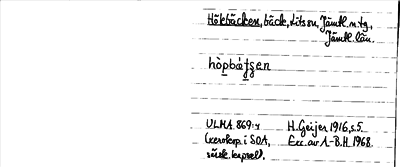 Hökbäcken, bäck, Lits sn, Jämtl. n. tg,
Jämtl. län.
hòpbátsen
ULMA 869:4
(xerokop. i SOA,
särsk. kapsel).
H. Geijer 1916, s. 5.
Exc. av A-B.H. 1968